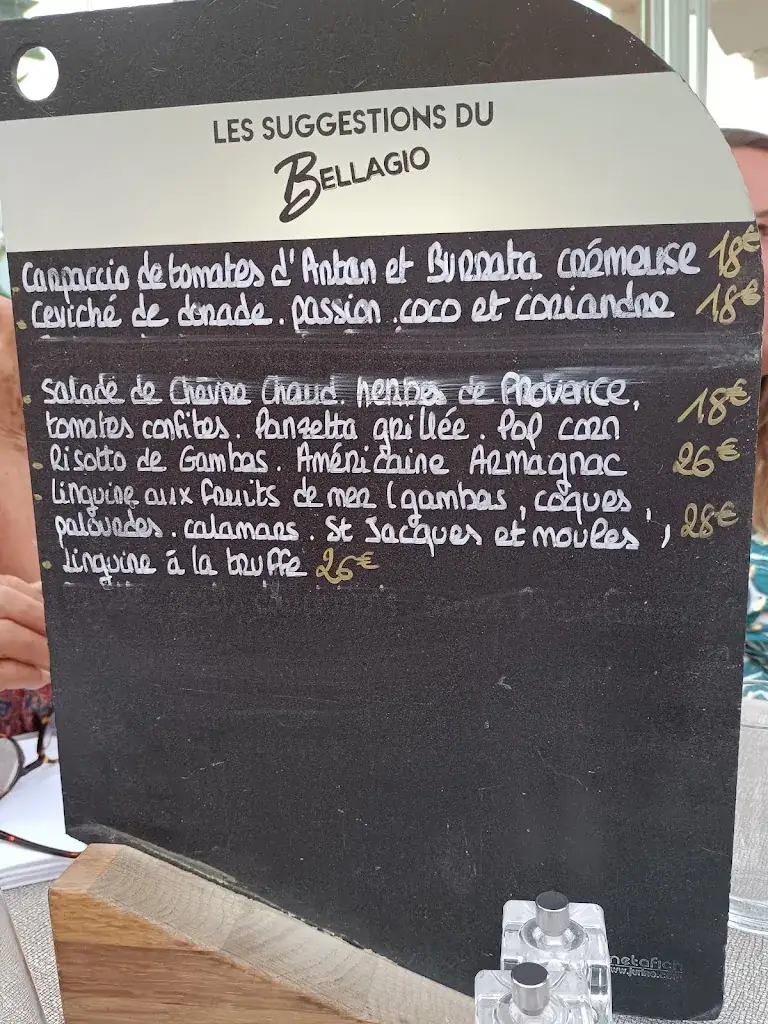 LES SUGGESTIONS DU
BELLAGIO
Carpaccio de tomates d'Antan et Burrata crémeuse 18€
Ceviché de dorade. passion. coco et coriandre 18€
Salade de Chèvre Chaud. herbes de Provence,
tomates confites. Panzetta grillée. Pop corn 18€
Risotto de Gambas. Américaine Armagnac 26€
Linguine aux fruits de mer (gambas, coques,
palourdes. calamars. St Jacques et moules) 28€
Linguine à la truffe 26€
metafich
www.jurino.com